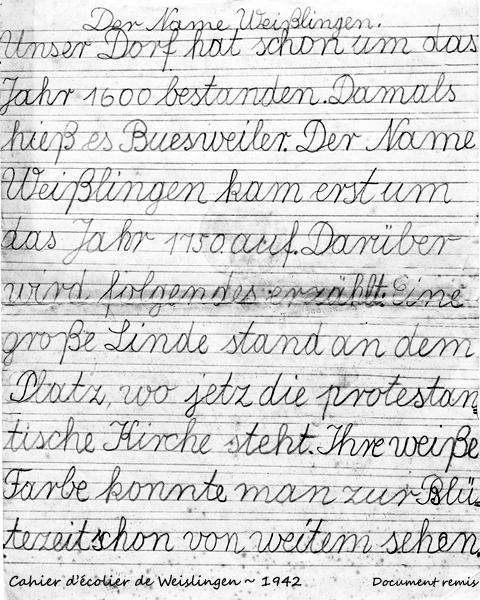 Der Name Weißlingen.
Unser Dorf hat schon um das
Jahr 1600 bestanden. Damals
hieß es Buesweiler. Der Name
Weißlingen kam erst um
das Jahr 1750 auf. Darüber
wird folgendes erzählt: Eine
große Linde stand an dem
Platz, wo jetz die protestan
tische Kirche steht. Ihre weiße
Farbe konnte man zur Blü-
tezeit schon von weitem sehen.
Cahier d'écolier de Weislingen ~ 1942 Document remis